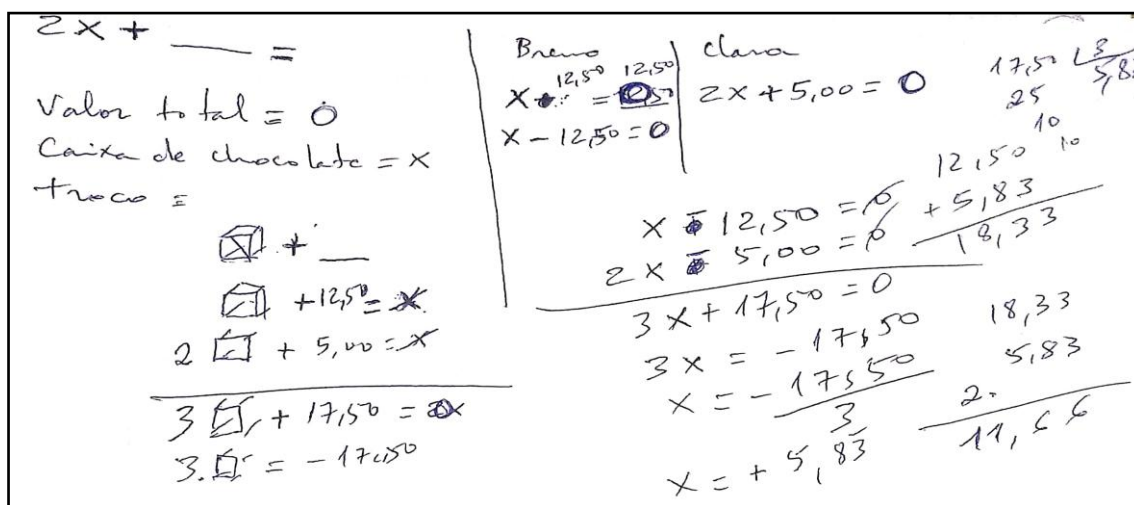 2x + ___ =
Valor total = 0
Caixa de chocolate = x
troco =
+ ___
+ 12,50 = x
2 + 5,00 = x
3 + 17,50 = x
3. = - 17,50
Breno
12,50 12,50
x =
x - 12,50 = 0
Clara
2x + 5,00 = 0
17,50 3
25 5,83
10
10
12,50
+ 5,83
18,33
x - 12,50 = 0
2x - 5,00 = 0
3x + 17,50 = 0
3x = - 17,50
x = - 17,50
3
x = + 5,83
18,33
5,83
2.
11,66